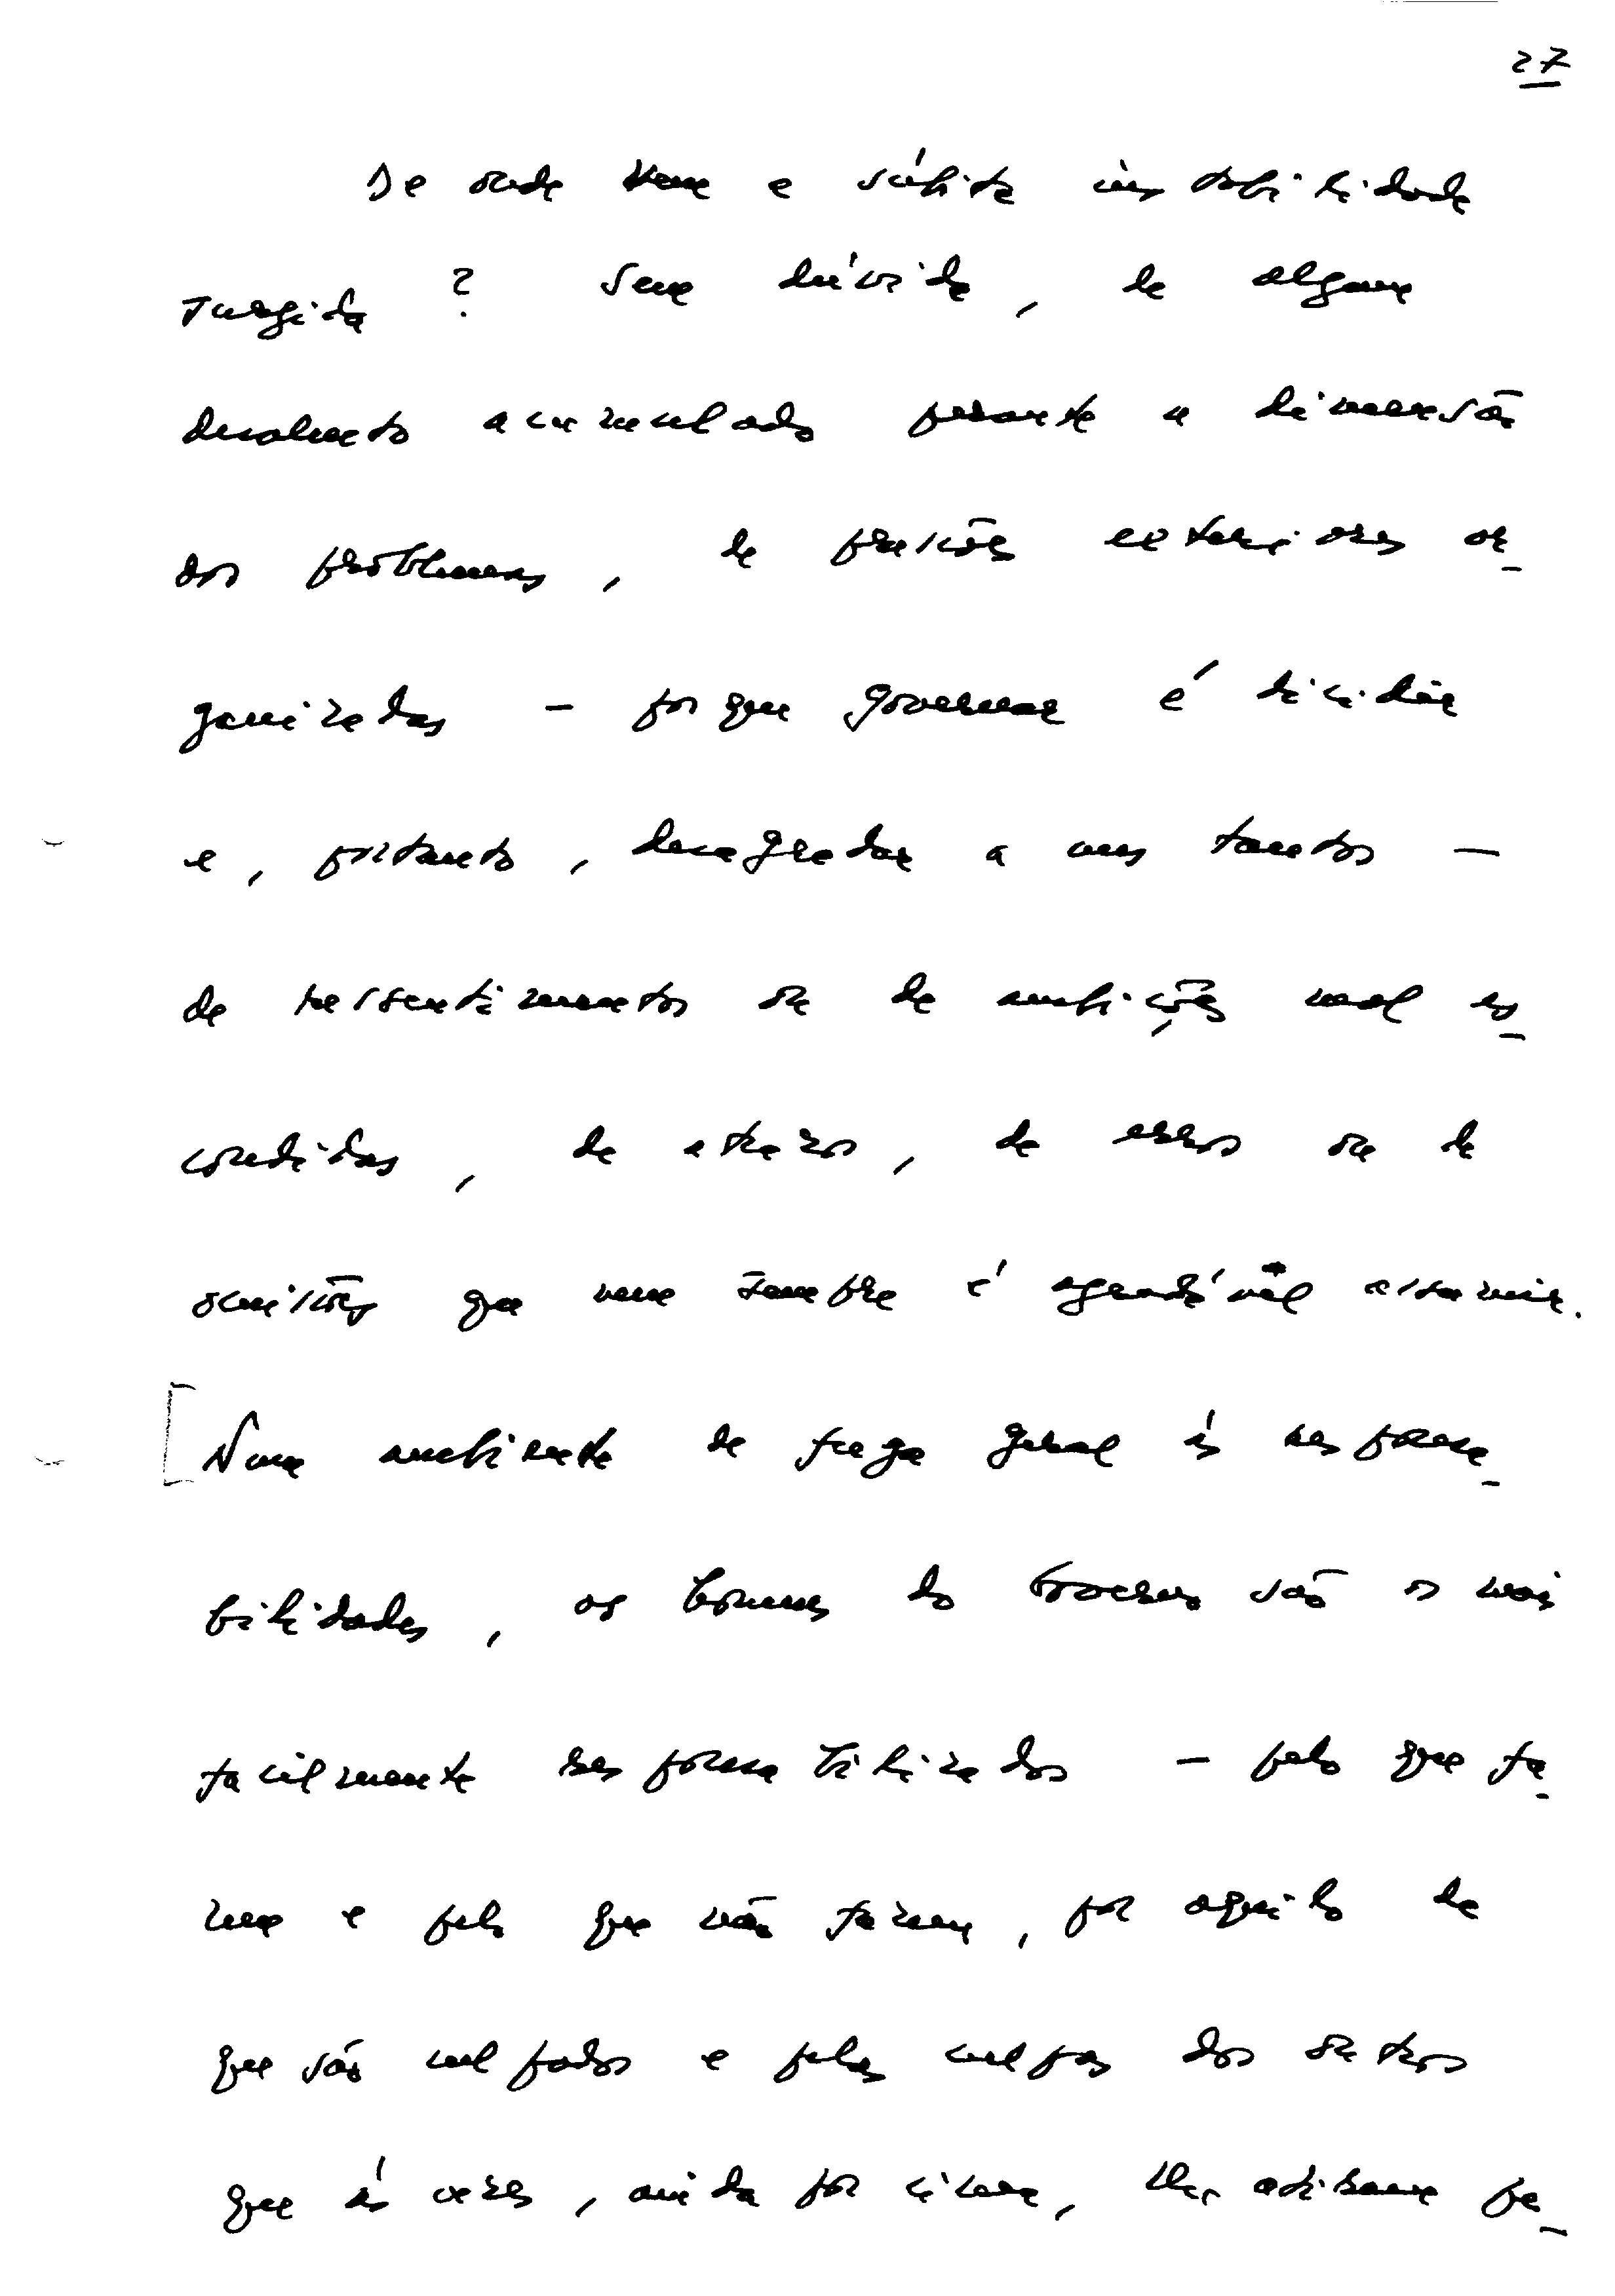 27
De onde vem a súbita instabilidade
surgida? Sem dúvida, de algum
desalento acumulado perante a dimensão
dos problemas, de pressões exteriores or-
ganizadas - porque governar é decidir
e, portanto, desagradar a uns tantos -
de ressentimentos ou de ambições mal es-
condidas, de atrasos, de erros ou de
omissões que nem sempre é agradável assumir.
[Num ambiente de fuga geral às responsa-
bilidades, os homens do Governo são os mais
facilmente responsabilizados - pelo que fa-
zem e pelo que não fazem, por aquilo de
que são culpados e pelas culpas dos outros
que às vezes, ainda por cima, lhes atiram pe-